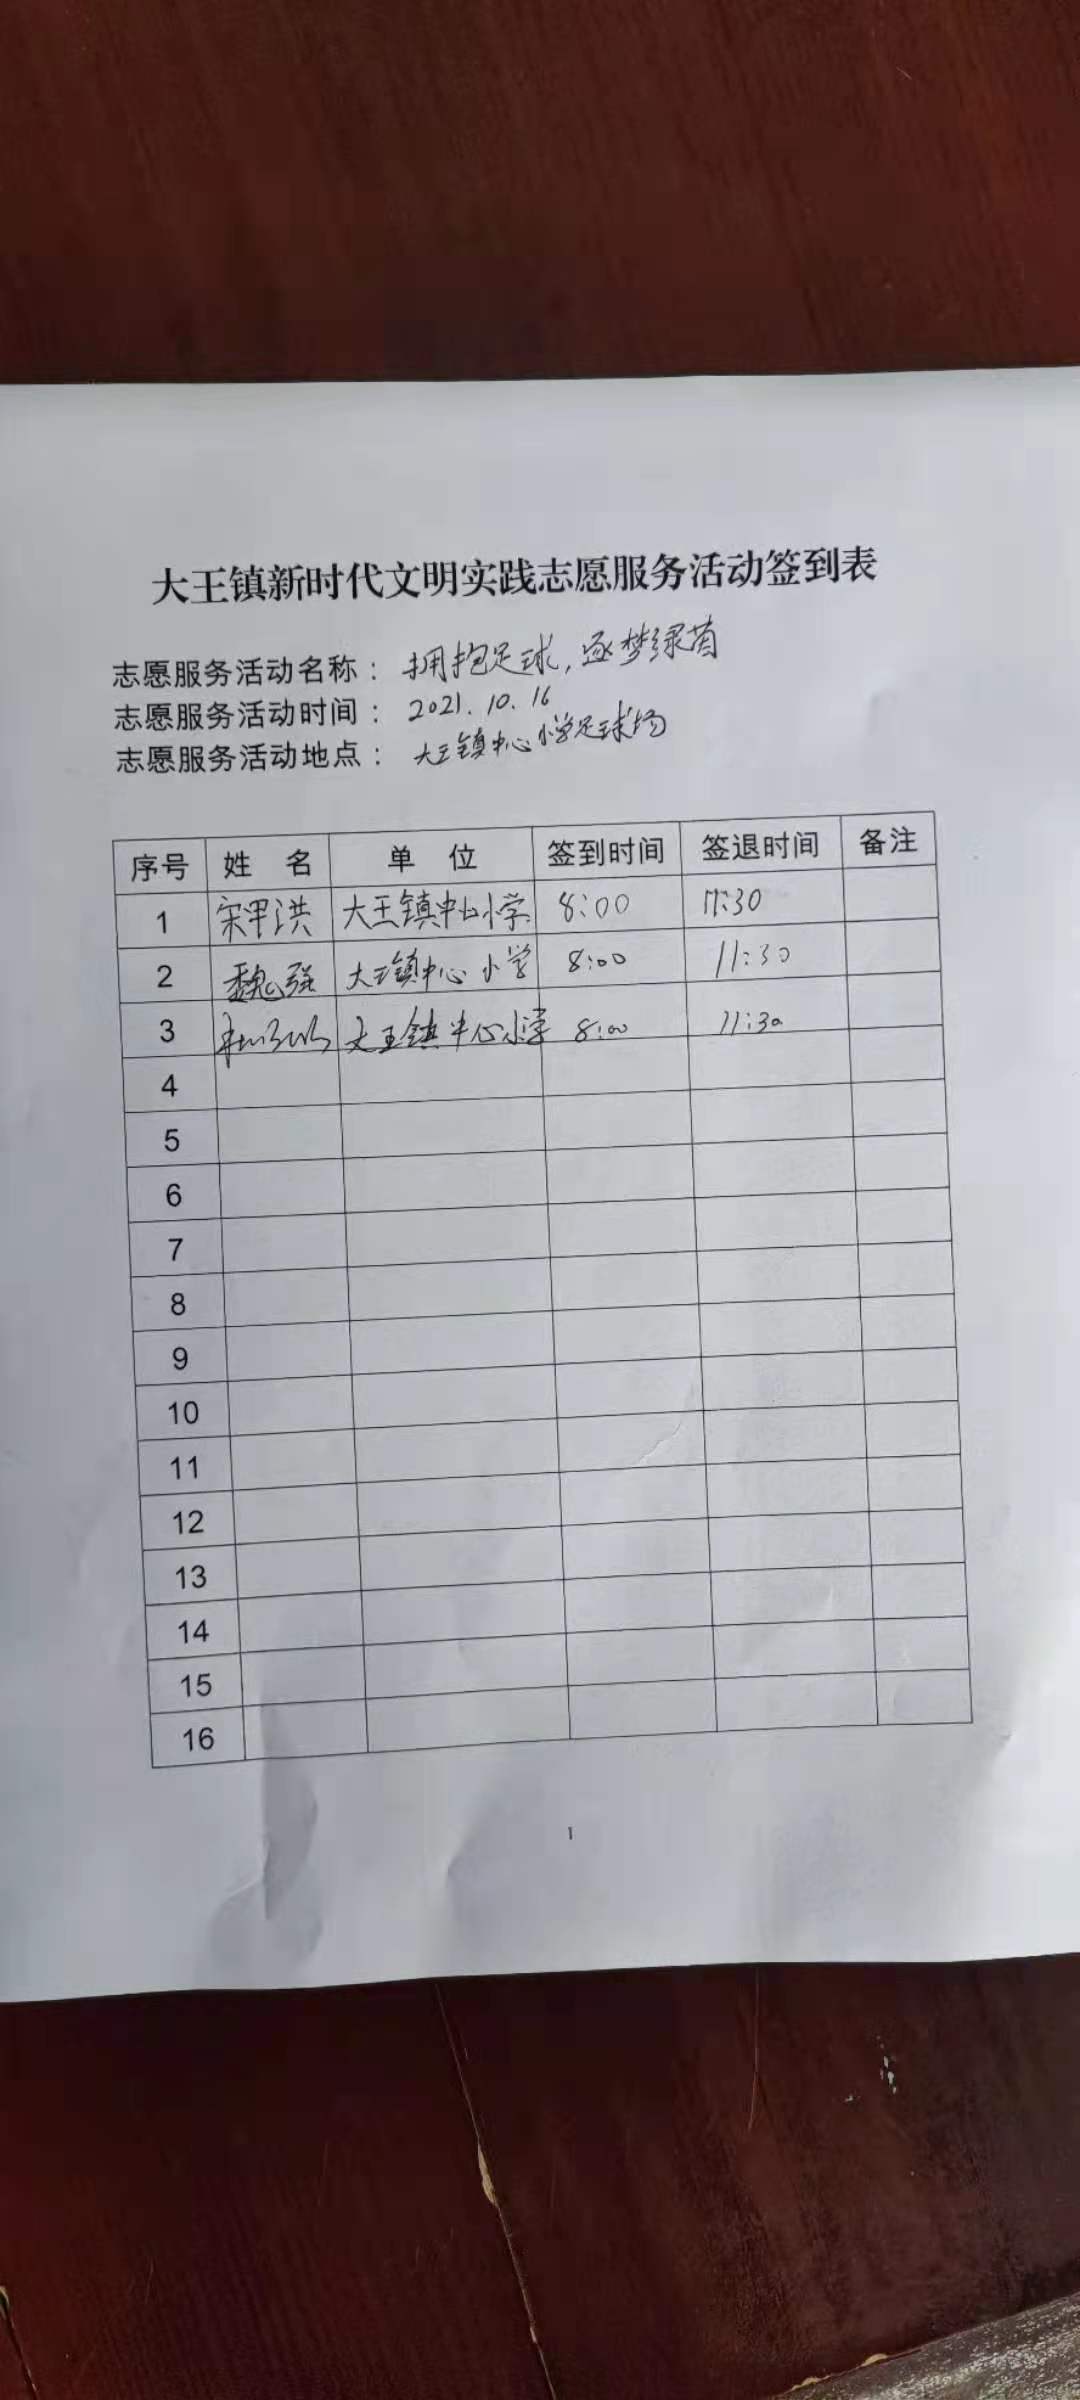 大王镇新时代文明实践志愿服务活动签到表
志愿服务活动名称：拥抱足球，逐梦绿茵
志愿服务活动时间：2021.10.16
志愿服务活动地点：大王镇中心小学足球场
序号 姓 名 单 位 签到时间 签退时间 备注
1 宋甲洪 大王镇中心小学 8:00 11:30
2 魏强 大王镇中心小学 8:00 11:30
3 大王镇中心小学 8:00 11:30
4
5
6
7
8
9
10
11
12
13
14
15
16
1